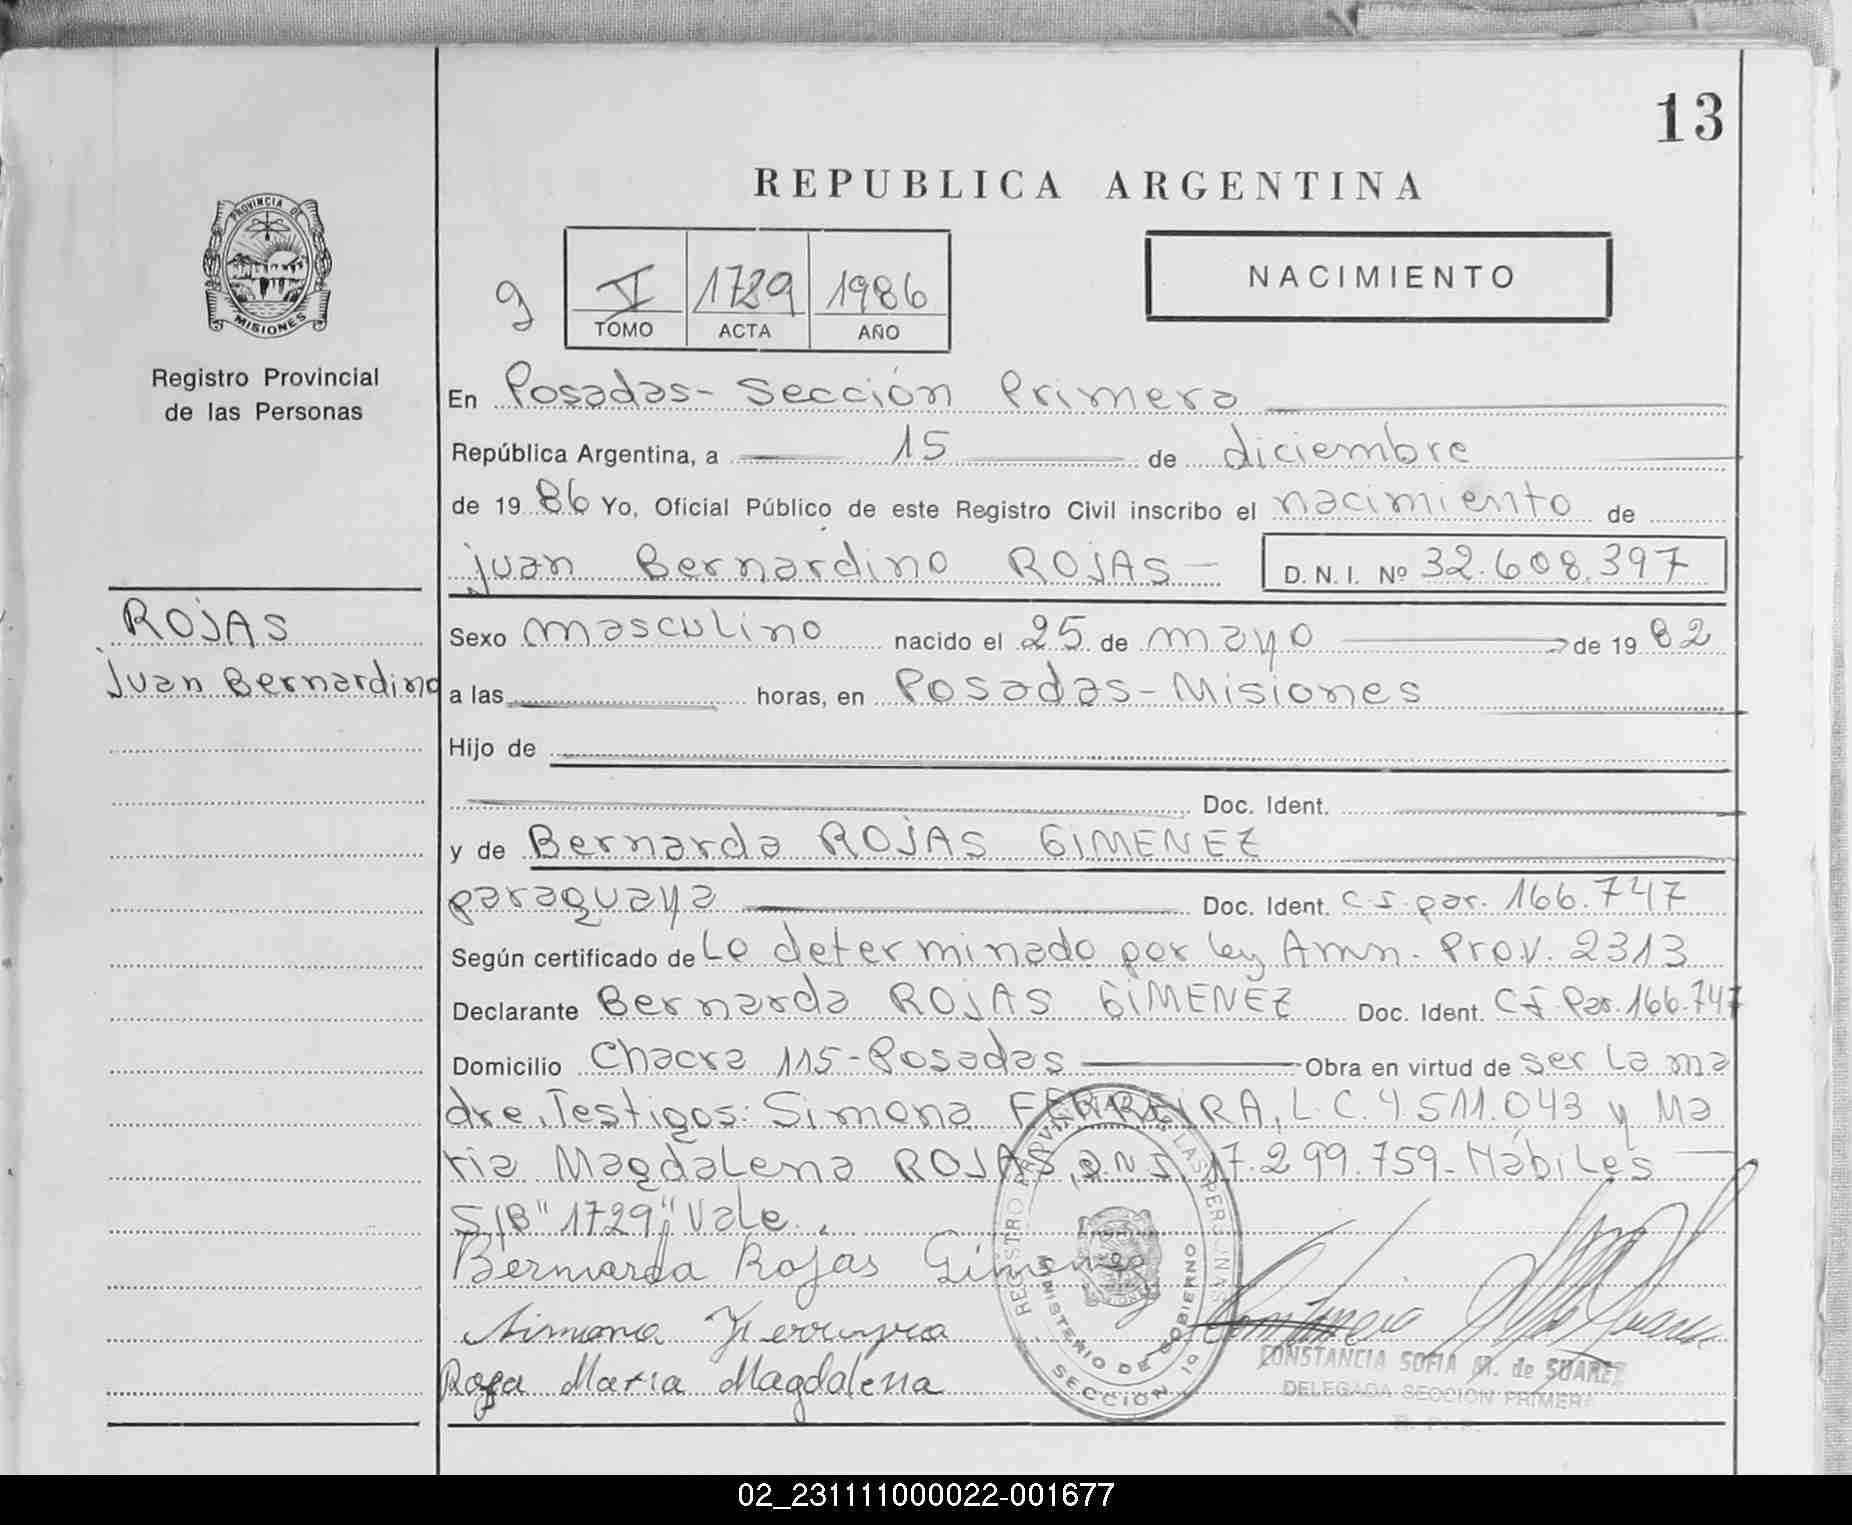 13
REPUBLICA ARGENTINA
PROVINCIA DE
MISIONES
Registro Provincial
de las Personas
9
V 1729 1986
TOMO ACTA AÑO
NACIMIENTO
En Posadas - Sección Primera
República Argentina, a 15 de diciembre
de 1986 Yo, Oficial Público de este Registro Civil inscribo el nacimiento de
juan Bernardino ROJAS - D. N. I. Nº 32.608.397
ROJAS
juan Bernardino
Sexo masculino nacido el 25 de mayo de 1982
a las horas, en Posadas - Misiones
Hijo de
Doc. Ident.
y de Bernarda ROJAS GIMENEZ
paraguaya Doc. Ident. C.I. par. 166.747
Según certificado de Lo determinado por ley Amn. Prov. 2313
Declarante Bernarda ROJAS GIMENEZ Doc. Ident. C.I. Par. 166.747
Domicilio Chacra 115 - Posadas Obra en virtud de ser la ma
dre, Testigos: Simona FERREIRA, L.C. 4.511.043 y Ma
ria Magdalena ROJAS, D.N.I. 17.299.759 - Hábiles
S/B "1729" Vale.
Bernarda Rojas Gimenez
Simona Ferreyra
Rosa Maria Magdalena
REGISTRO PROVINCIAL DE LAS PERSONAS
MINISTERIO DE GOBIERNO
SECCION 1º
CONSTANCIA SOFIA M. de SUAREZ
DELEGADA SECCION PRIMERA
R. P. P.
02_231111000022-001677